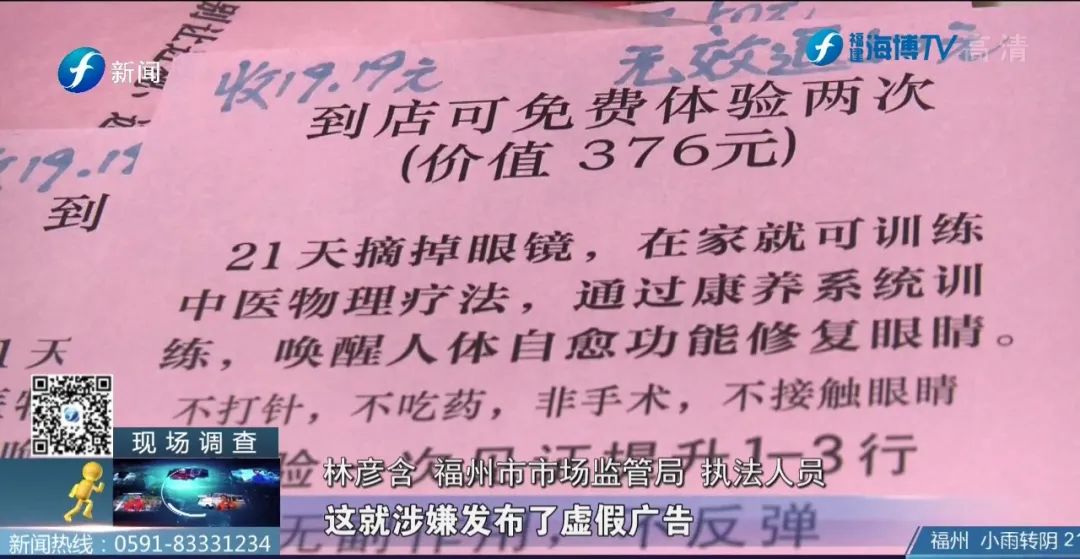 新闻
福建 海博TV
高清
收19.19元
无效退
收19.19
到店可免费体验两次
(价值 376元)
到
21天摘掉眼镜，在家就可训练
中医物理疗法，通过康养系统训
练，唤醒人体自愈功能修复眼睛。
1天
不打针，不吃药，非手术，不接触眼睛
验一次见证提升1-3行
反弹
现场调查
林彦含 福州市市场监管局 执法人员
这就涉嫌发布了虚假广告
新闻热线：0591-83331234
福州 小雨转阴 21